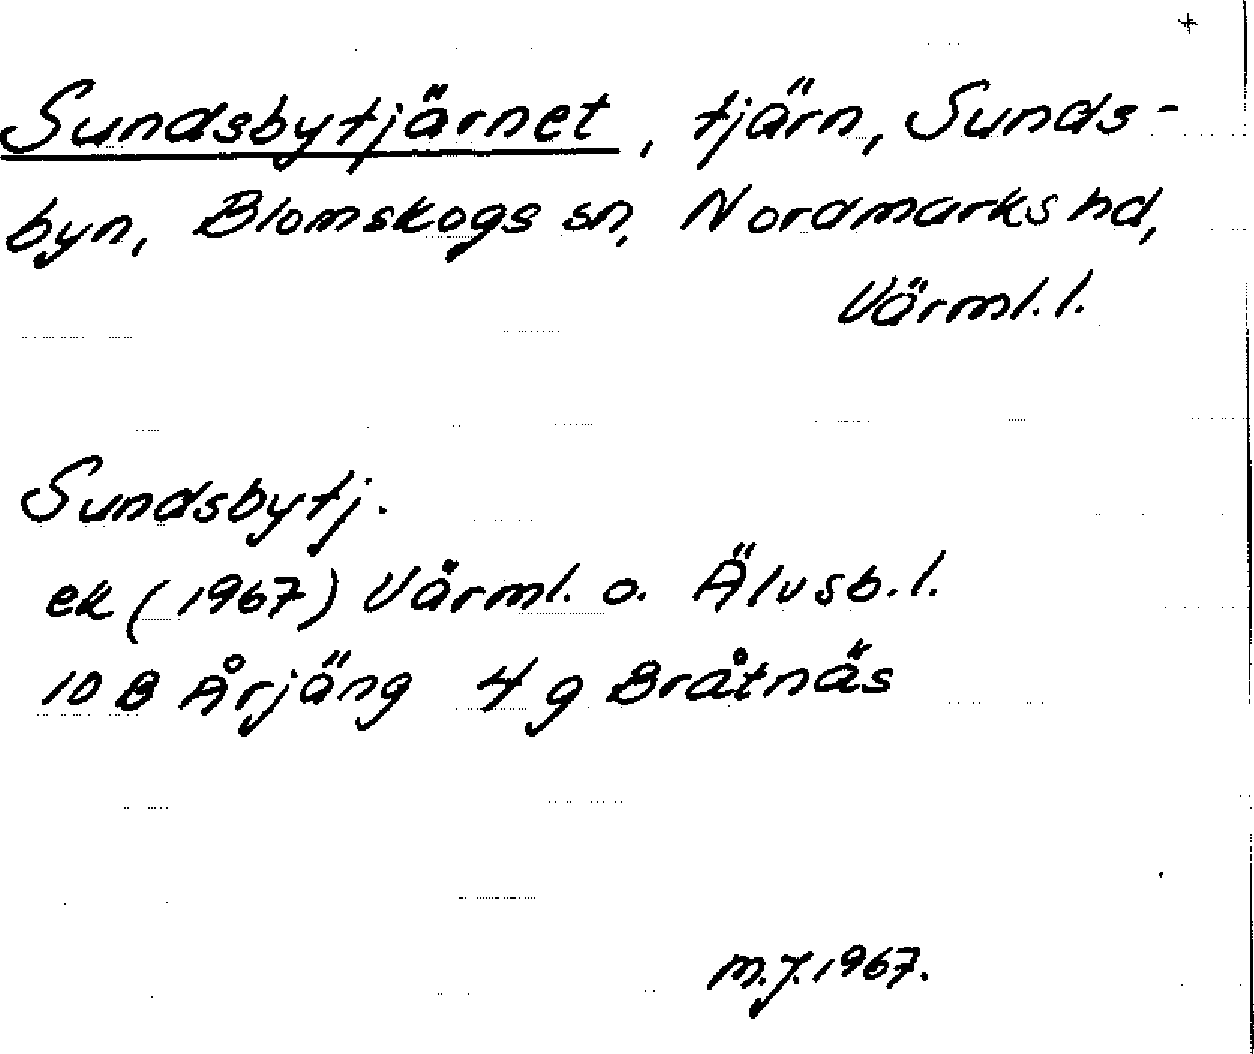 +
Sundsbytjärnet, tjärn, Sunds-
byn, Blomskogs sn, Nordmarks hd,
Värml. l.
Sundsbytj.
ek (1967) Värml. o. Älvsb. l.
10 B Årjäng 4 g Bråtnäs
M.J. 1967.